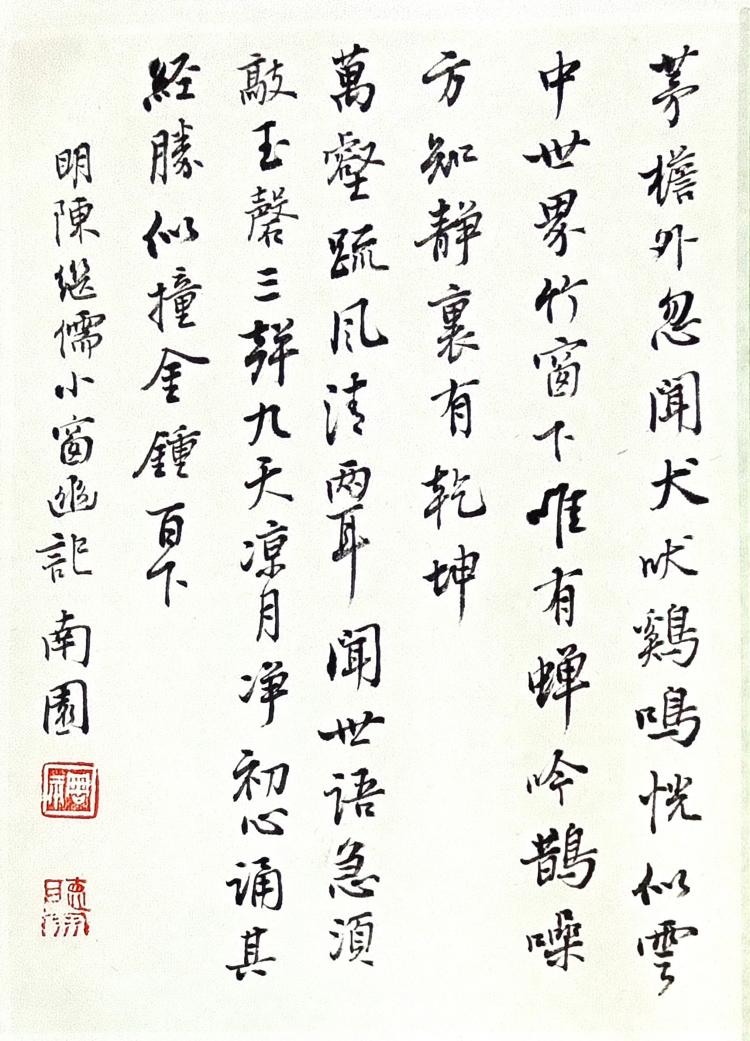 茅檐外忽聞犬吠鷄鳴恍似雲
中世界竹窗下唯有蝉吟鵲噪
方知静裏有乾坤
萬壑疏风清兩耳聞世語急須
敲玉磬三聲九天凉月净初心誦其
経勝似撞金鍾百下
明陳継儒小窗幽記 南園